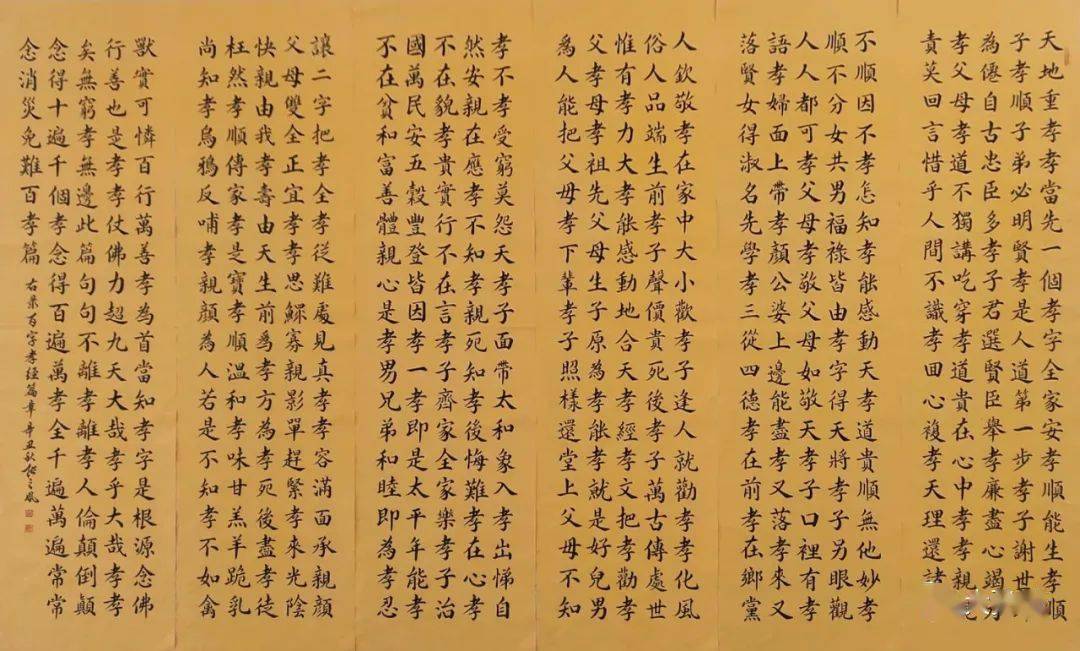 天地重孝孝當先一個孝字全家安孝順能生孝順
子孝順子弟必明賢孝是人道第一步孝子謝世
為僊自古忠臣多孝子君選賢臣舉孝廉盡心竭力
孝父母孝道不獨講吃穿孝道貴在心中孝孝親
責莫回言惜乎人間不識孝回心複孝天理還諸
不順因不孝怎知孝能感動天孝道貴順無他妙孝
順不分女共男福祿皆由孝字得天將孝子另眼觀
人人都可孝父母孝敬父母如敬天孝子口裡有孝
語孝婦面上帶孝顏公婆上邊能盡孝又落孝來又
落賢女得淑名先學孝三從四德孝在前孝在鄉黨
人欽敬孝在家中大小歡孝子逢人就勸孝孝化風
俗人品端生前孝子聲價貴死後孝子萬古傳處世
惟有孝力大孝能感動地合天孝經孝文把孝勸孝
父孝母孝祖先父母生子原為孝能孝就是好兒男
爲人能把父母孝下輩孝子照樣還堂上父母不知
孝不孝受窮莫怨天孝子面帶太和象入孝出悌自
然安親在應孝不知孝親死知孝後悔難孝在心孝
不在貌孝貴實行不在言孝子齊家全家樂孝子治
國萬民安五穀豐登皆因孝一孝即是太平年能孝
不在貧和富善體親心是孝男兄弟和睦即為孝忍
讓二字把孝全孝從難處見真孝孝容滿面承親顏
父母雙全正宜孝孝思鰥寡親影單趕緊孝來光陰
快親由我孝壽由天生前爲孝方為孝死後盡孝徒
枉然孝順傳家孝是寶孝順溫和孝味甘羔羊跪乳
尚知孝烏鴉反哺孝親顏為人若是不知孝不如禽
獸實可憐百行萬善孝為首當知孝字是根源念佛
行善也是孝孝仗佛力超九天大哉孝乎大哉孝孝
矣無窮孝無邊此篇句句不離孝離孝人倫顛倒顛
念得十遍千個孝念得百遍萬孝全千遍萬遍常常
念消災免難百孝篇
右录百字孝經篇章辛丑秋